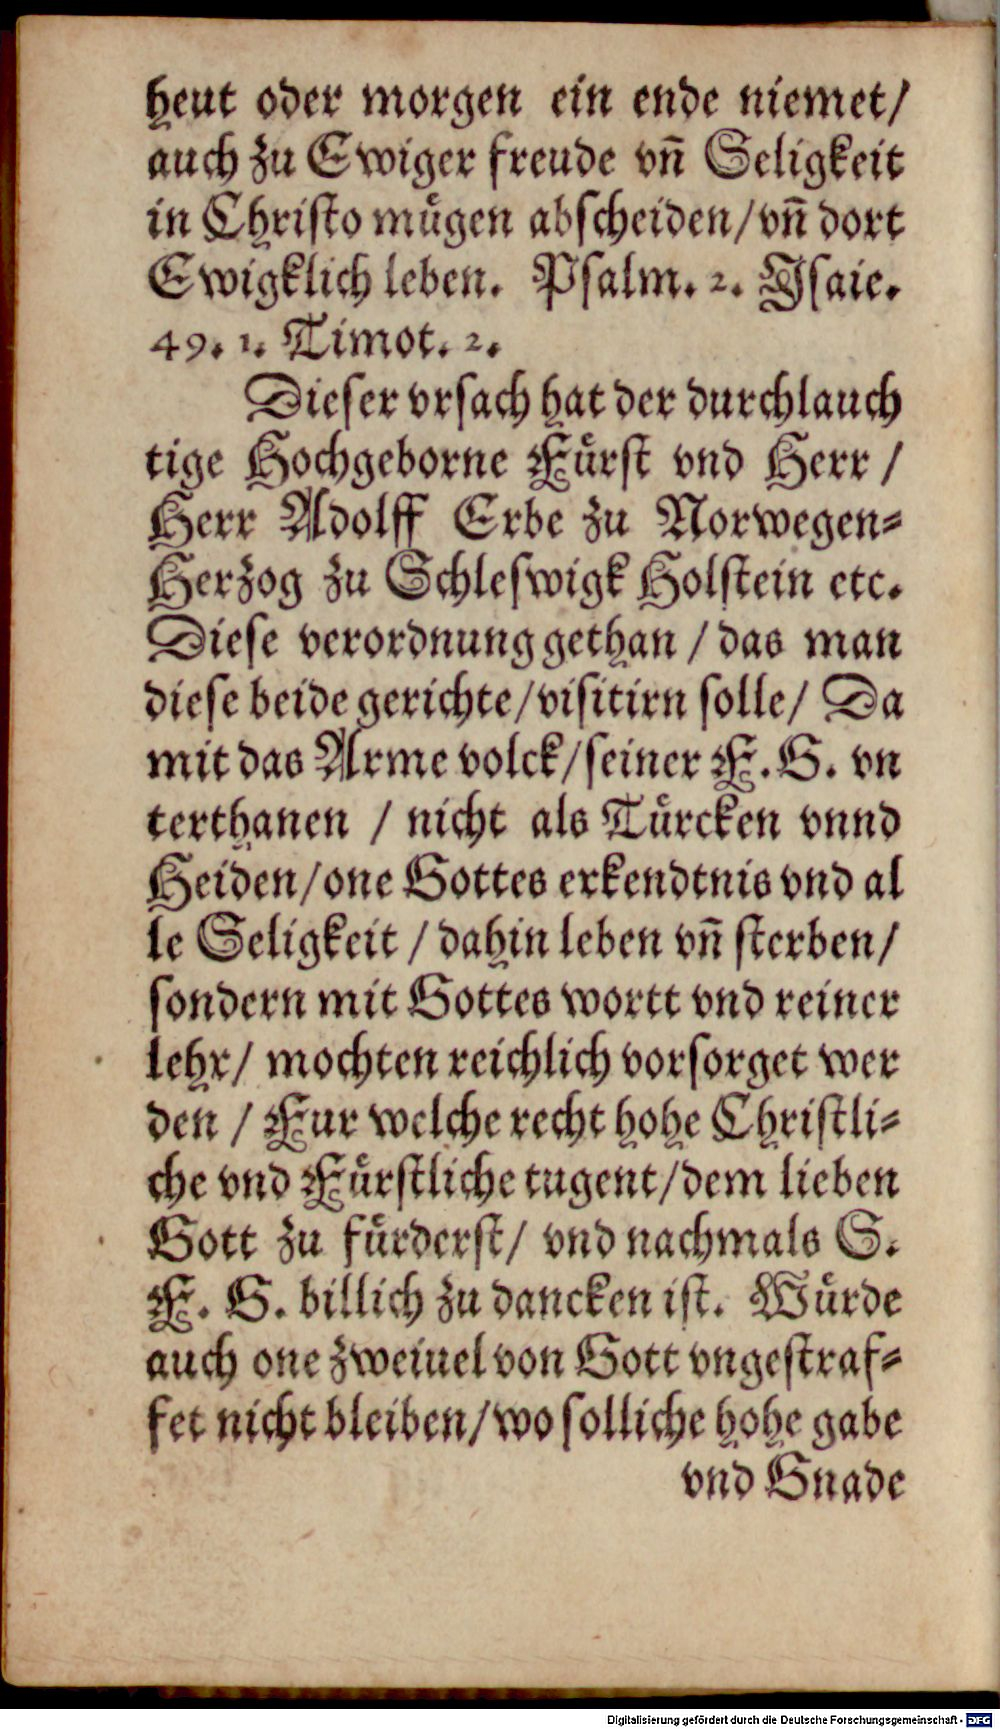 heut oder morgen ein ende niemet/
auch zu Ewiger freude vn̄ Seligkeit
in Christo mügen abscheiden/vn̄ dort
Ewigklich leben. Psalm. 2. Jsaie.
49. 1. Timot. 2.
Dieser vrsach hat der durchlauch
tige Hochgeborne Fürst vnd Herr /
Herr Adolff Erbe zu Norwegen=
Herzog zu Schleswigk Holstein etc.
Diese verordnung gethan / das man
diese beide gerichte/visitirn solle/ Da
mit das Arme volck/seiner F. G. vn
terthanen / nicht als Türcken vnnd
Heiden/one Gottes erkendtnis vnd al
le Seligkeit / dahin leben vn̄ sterben/
sondern mit Gottes wortt vnd reiner
lehr/ mochten reichlich vorsorget wer
den / Fur welche recht hohe Christli=
che vnd Fürstliche tugent/dem lieben
Gott zu fürderst/ vnd nachmals S.
F. G. billich zu dancken ist. Würde
auch one zweiuel von Gott vngestraf=
fet nicht bleiben/wo solliche hohe gabe
vnd Gnade
Digitalisierung gefördert durch die Deutsche Forschungsgemeinschaft - DFG